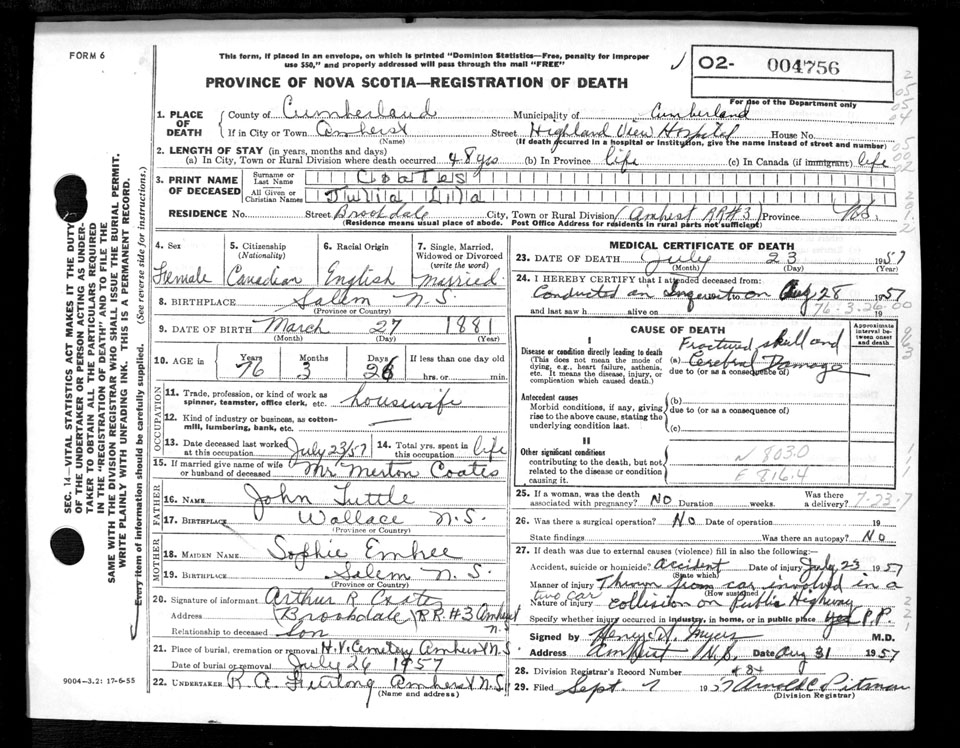 FORM 6
This form, if placed in an envelope, on which is printed "Dominion Statistics—Free, penalty for improper
use $50," and properly addressed will pass through the mail "FREE"
PROVINCE OF NOVA SCOTIA—REGISTRATION OF DEATH
O2- 004756
For use of the Department only
1. PLACE OF DEATH County of Cumberland Municipality of Cumberland
If in City or Town Amherst Street Highland View Hospital House No.
(Name) (If death occurred in a hospital or institution, give the name instead of street and number)
2. LENGTH OF STAY (in years, months and days)
(a) In City, Town or Rural Division where death occurred 48 yrs (b) In Province life (c) In Canada (if immigrant) life
3. PRINT NAME OF DECEASED Surname or Last Name Coates
All Given or Christian Names Julia Lida
RESIDENCE No. Street Brookdale City, Town or Rural Division (Amherst RR#3) Province N.S.
(Residence means usual place of abode. Post Office Address for residents in rural parts not sufficient)
4. Sex Female
5. Citizenship (Nationality) Canadian
6. Racial Origin English
7. Single, Married, Widowed or Divorced (write the word) Married
8. BIRTHPLACE Salem N.S.
(Province or Country)
9. DATE OF BIRTH March 27 1881
(Month) (Day) (Year)
10. AGE in Years 76 Months 3 Days 26 If less than one day old
hrs. or min.
OCCUPATION
11. Trade, profession, or kind of work as spinner, teamster, office clerk, etc. housewife
12. Kind of industry or business, as cotton-mill, lumbering, bank, etc. —
13. Date deceased last worked at this occupation July 23/57 14. Total yrs. spent in this occupation life
15. If married give name of wife or husband of deceased Mr. Merton Coates
FATHER
16. NAME John Tuttle
17. BIRTHPLACE Wallace N.S.
(Province or Country)
MOTHER
18. MAIDEN NAME Sophie Embree
19. BIRTHPLACE Salem N.S.
(Province or Country)
20. Signature of informant Arthur R Coates
Address Brookdale (RR#3 Amherst N.S.
Relationship to deceased Son
21. Place of burial, cremation or removal H.V. Cemetery Amherst N.S.
Date of burial or removal July 26 1957
22. UNDERTAKER R. A. Furlong Amherst N.S.
(Name and address)
9004-3.2: 17-6-55
MEDICAL CERTIFICATE OF DEATH
23. DATE OF DEATH July 23 1957
(Month) (Day) (Year)
24. I HEREBY CERTIFY that I attended deceased from:
Conducted an Inquest on Aug 28 1957
and last saw h alive on 19
76-3-26-00
CAUSE OF DEATH
Approximate interval between onset and death
I
Disease or condition directly leading to death
(This does not mean the mode of dying, e.g., heart failure, asthenia, etc. It means the disease, injury, or complication which caused death.)
(a) Fractured skull and Cerebral Damage
due to (or as a consequence of)
Antecedent causes
Morbid conditions, if any, giving rise to the above cause, stating the underlying condition last.
(b)
due to (or as a consequence of)
(c)
II
Other significant conditions
contributing to the death, but not related to the disease or condition causing it.
N 803.0
E 816.4
25. If a woman, was the death associated with pregnancy? No Duration weeks. Was there a delivery?
7-23-7
26. Was there a surgical operation? No Date of operation 19
State findings Was there an autopsy? No
27. If death was due to external causes (violence) fill in also the following:—
Accident, suicide or homicide? accident Date of injury July 23 1957
(State which)
Manner of injury Thrown from car involved in a
(How sustained)
two car
Nature of injury collision on Public Highway
Specify whether injury occurred in industry, in home, or in public place yes P.P.
Signed by M.D.
Address Amherst N.S. Date Aug 31 1957
28. Division Registrar's Record Number
29. Filed Sept. 7 1957 Arnold C Pitman
(Division Registrar)
SEC. 14—VITAL STATISTICS ACT MAKES IT THE DUTY
OF THE UNDERTAKER OR PERSON ACTING AS UNDER-
TAKER TO OBTAIN ALL THE PARTICULARS REQUIRED
IN THE "REGISTRATION OF DEATH" AND TO FILE THE
SAME WITH THE DIVISION REGISTRAR WHO SHALL ISSUE THE BURIAL PERMIT.
WRITE PLAINLY WITH UNFADING INK. THIS IS A PERMANENT RECORD.
Every item of information should be carefully supplied. (See reverse side for instructions.)